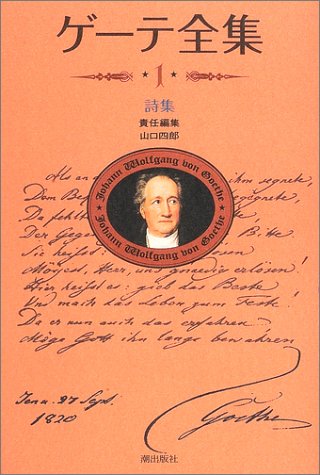 ゲーテ全集
1
詩集
責任編集
山口四郎
Johann Wolfgang von Goethe
Johann Wolfgang von Goethe
Als an ihm segnete,
Dem Be
Da fehlt
Der Gegen Bitte
Sie heisst lösen
Mögest, Herr, uns gnaedig erlösen!
Hier heisst es: gieb das Beste
Und mach das Leben zum Feste!
Da er nun auch das erfahren
Möge Gott ihn lange bewahren
Jena. 27 Sept.
1820
Goethe
潮出版社